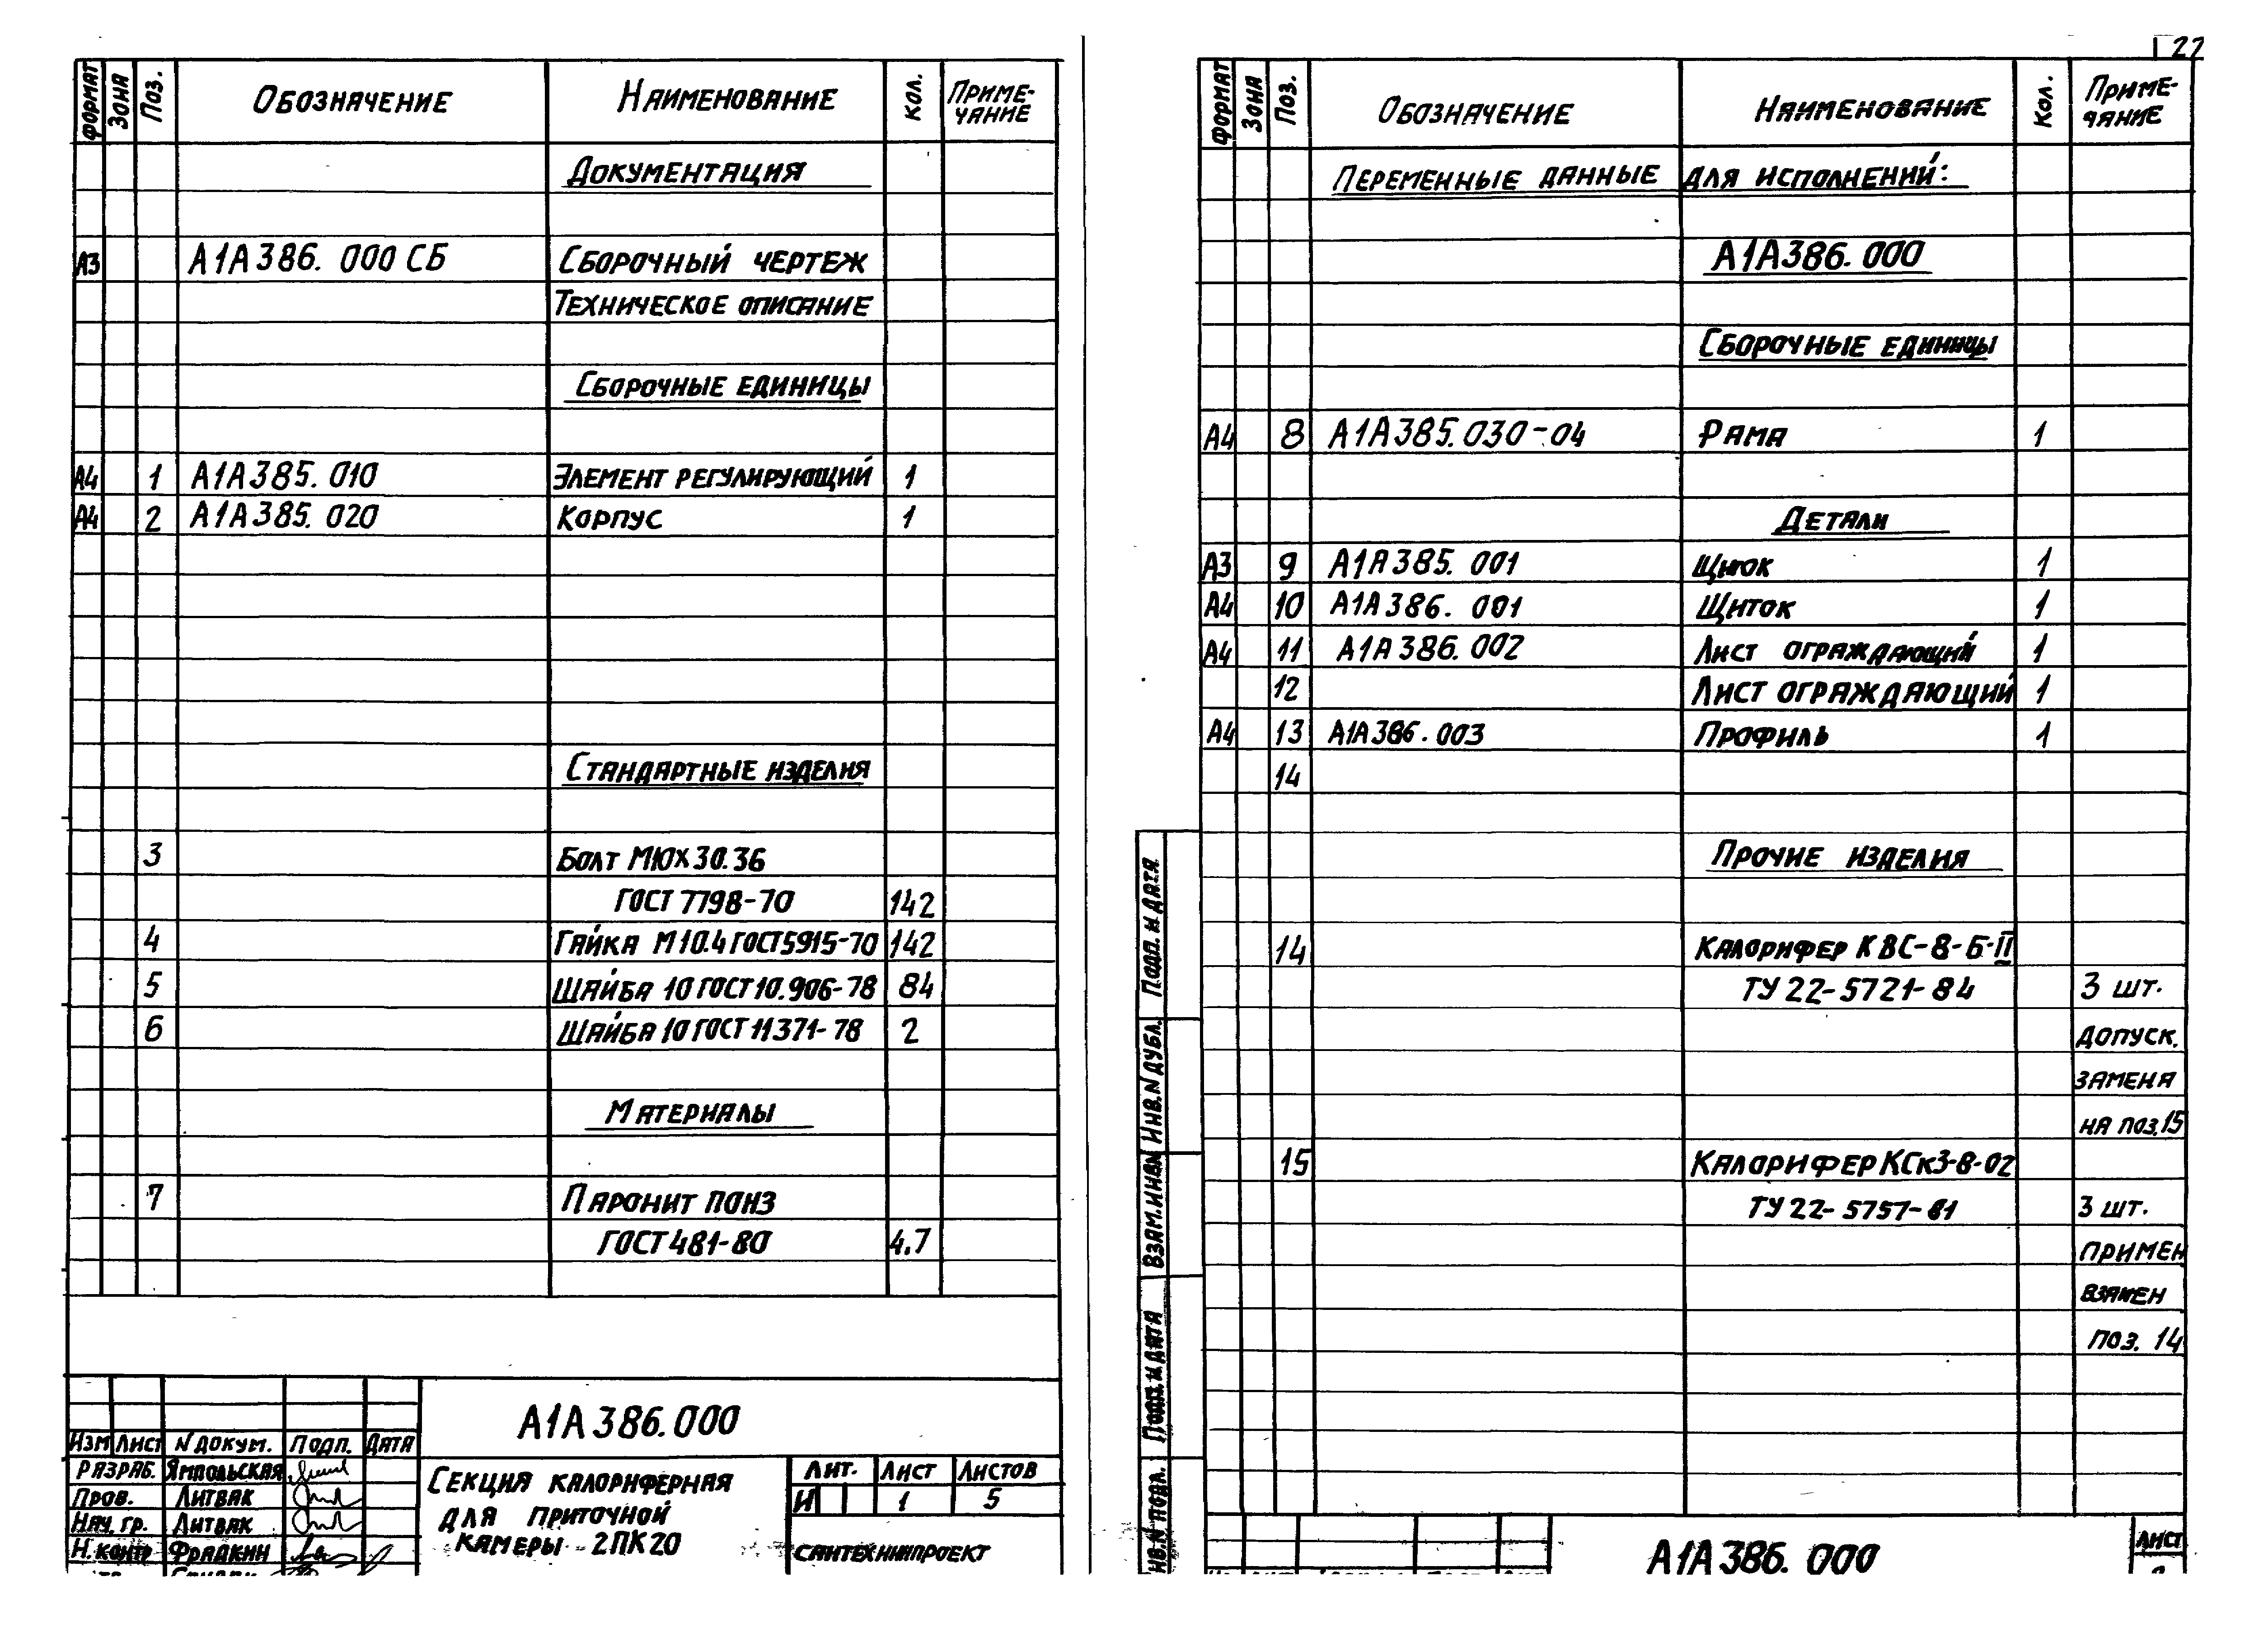 22
ФОРМАТ ЗОНА ПОЗ. ОБОЗНАЧЕНИЕ НАИМЕНОВАНИЕ КОЛ. ПРИМЕ-
ЧАНИЕ
ДОКУМЕНТАЦИЯ
А3 А1А386. 000 СБ СБОРОЧНЫЙ ЧЕРТЕЖ
ТЕХНИЧЕСКОЕ ОПИСАНИЕ
СБОРОЧНЫЕ ЕДИНИЦЫ
А4 1 А1А385. 010 ЭЛЕМЕНТ РЕГУЛИРУЮЩИЙ 1
А4 2 А1А385. 020 КОРПУС 1
СТАНДАРТНЫЕ ИЗДЕЛИЯ
3 БОЛТ М10Х30.36
ГОСТ 7798-70 142
4 ГАЙКА М10.4 ГОСТ 5915-70 142
5 ШАЙБА 10 ГОСТ 10.906-78 84
6 ШАЙБА 10 ГОСТ 11371-78 2
МАТЕРИАЛЫ
7 ПАРОНИТ ПОН3
ГОСТ 481-80 4.7
А1А386.000
ИЗМ ЛИСТ N ДОКУМ. ПОДП. ДАТА
РАЗРАБ. ЯМПОЛЬСКАЯ
ПРОВ. ЛИТВАК
НАЧ. ГР. ЛИТВАК
Н. КОНТР ФРАДКИН
СЕКЦИЯ КАЛОРИФЕРНАЯ
ДЛЯ ПРИТОЧНОЙ
КАМЕРЫ 2ПК20
ЛИТ. ЛИСТ ЛИСТОВ
И 1 5
САНТЕХНИИПРОЕКТ
ФОРМАТ ЗОНА ПОЗ. ОБОЗНАЧЕНИЕ НАИМЕНОВАНИЕ КОЛ. ПРИМЕ-
ЧАНИЕ
ПЕРЕМЕННЫЕ ДАННЫЕ ДЛЯ ИСПОЛНЕНИЙ:
А1А386.000
СБОРОЧНЫЕ ЕДИНИЦЫ
А4 8 А1А385.030-04 РАМА 1
ДЕТАЛИ
А3 9 А1А385. 001 ЩИТОК 1
А4 10 А1А386. 001 ЩИТОК 1
А4 11 А1А386.002 ЛИСТ ОГРАЖДАЮЩИЙ 1
12 ЛИСТ ОГРАЖДАЮЩИЙ 1
А4 13 А1А386.003 ПРОФИЛЬ 1
14
ПРОЧИЕ ИЗДЕЛИЯ
14 КАЛОРИФЕР КВС-8-Б-II
ТУ 22-5721-84 3 ШТ.
ДОПУСК.
ЗАМЕНА
НА ПОЗ.15
15 КАЛОРИФЕР КСк3-8-02
ТУ 22-5757-81 3 ШТ.
ПРИМЕН
ВЗАМЕН
ПОЗ. 14
ПОДП. И ДАТА
ИНВ.N ДУБЛ.
ВЗАМ.ИНВ.N
ПОДП. И ДАТА
ИНВ.N ПОДЛ.
А1А386. 000
ЛИСТ